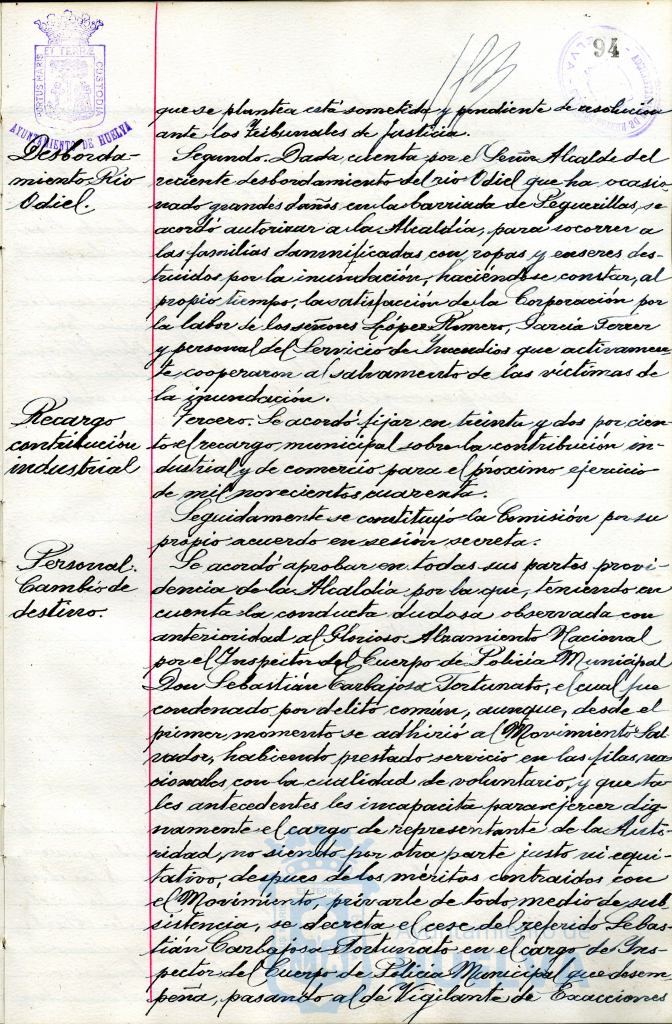 94
PORTUS MARIS ET TERRÆ CUSTODIA
AYUNTAMIENTO DE HUELVA
que se plantea está sometida y pendiente de resolución
ante los Tribunales de Justicia.
Desborda-
miento Rio
Odiel.
Segundo. Dada cuenta por el Señor Alcalde del
reciente desbordamiento del rio Odiel que ha ocasio
nado grandes daños en la barriada de Peguerillas, se
acordó autorizar a la Alcaldía, para socorrer a
las familias damnificadas con ropas y enseres des-
truidos por la inundación, haciéndose constar, al
propio tiempo, la satisfacción de la Corporación por
la labor de los señores López Romero, García Ferrer
y personal del Servicio de Incendios que activamen
te cooperaron al salvamento de las victimas de
la inundación.
Recargo
contribución
industrial
Tercero. Se acordó fijar en treinta y dos por cien-
to el recargo municipal sobre la contribución in-
dustrial y de comercio para el próximo ejercicio
de mil novecientos cuarenta.
Seguidamente se constituyó la Comisión por su
propio acuerdo en sesión secreta.
Personal.
Cambio de
destino.
Se acordó aprobar en todas sus partes provi-
dencia de la Alcaldía por la que, teniendo en
cuenta la conducta dudosa observada con
anterioridad al Glorioso Alzamiento Nacional
por el Inspector del Cuerpo de Policía Municipal
Don Sebastián Carbajosa Fortunato, el cual fue
condenado por delito común, aunque, desde el
primer momento se adhirió al Movimiento Sal-
vador, habiendo prestado servicio en las filas na
cionales con la cualidad de voluntario, y que ta-
les antecedentes les incapacita para ejercer dig-
namente el cargo de representante de la Auto
ridad, no siendo por otra parte justo ni equi-
tativo, despues de los méritos contraidos con
el Movimiento, privarle de todo medio de sub
sistencia, se decreta el cese del referido Sebas-
tián Carbajosa Fortunato en el cargo de Ins-
pector del Cuerpo de Policia Municipal que desem
peña, pasando al de Vigilante de Exacciones
Ayuntamiento de
HUELVA